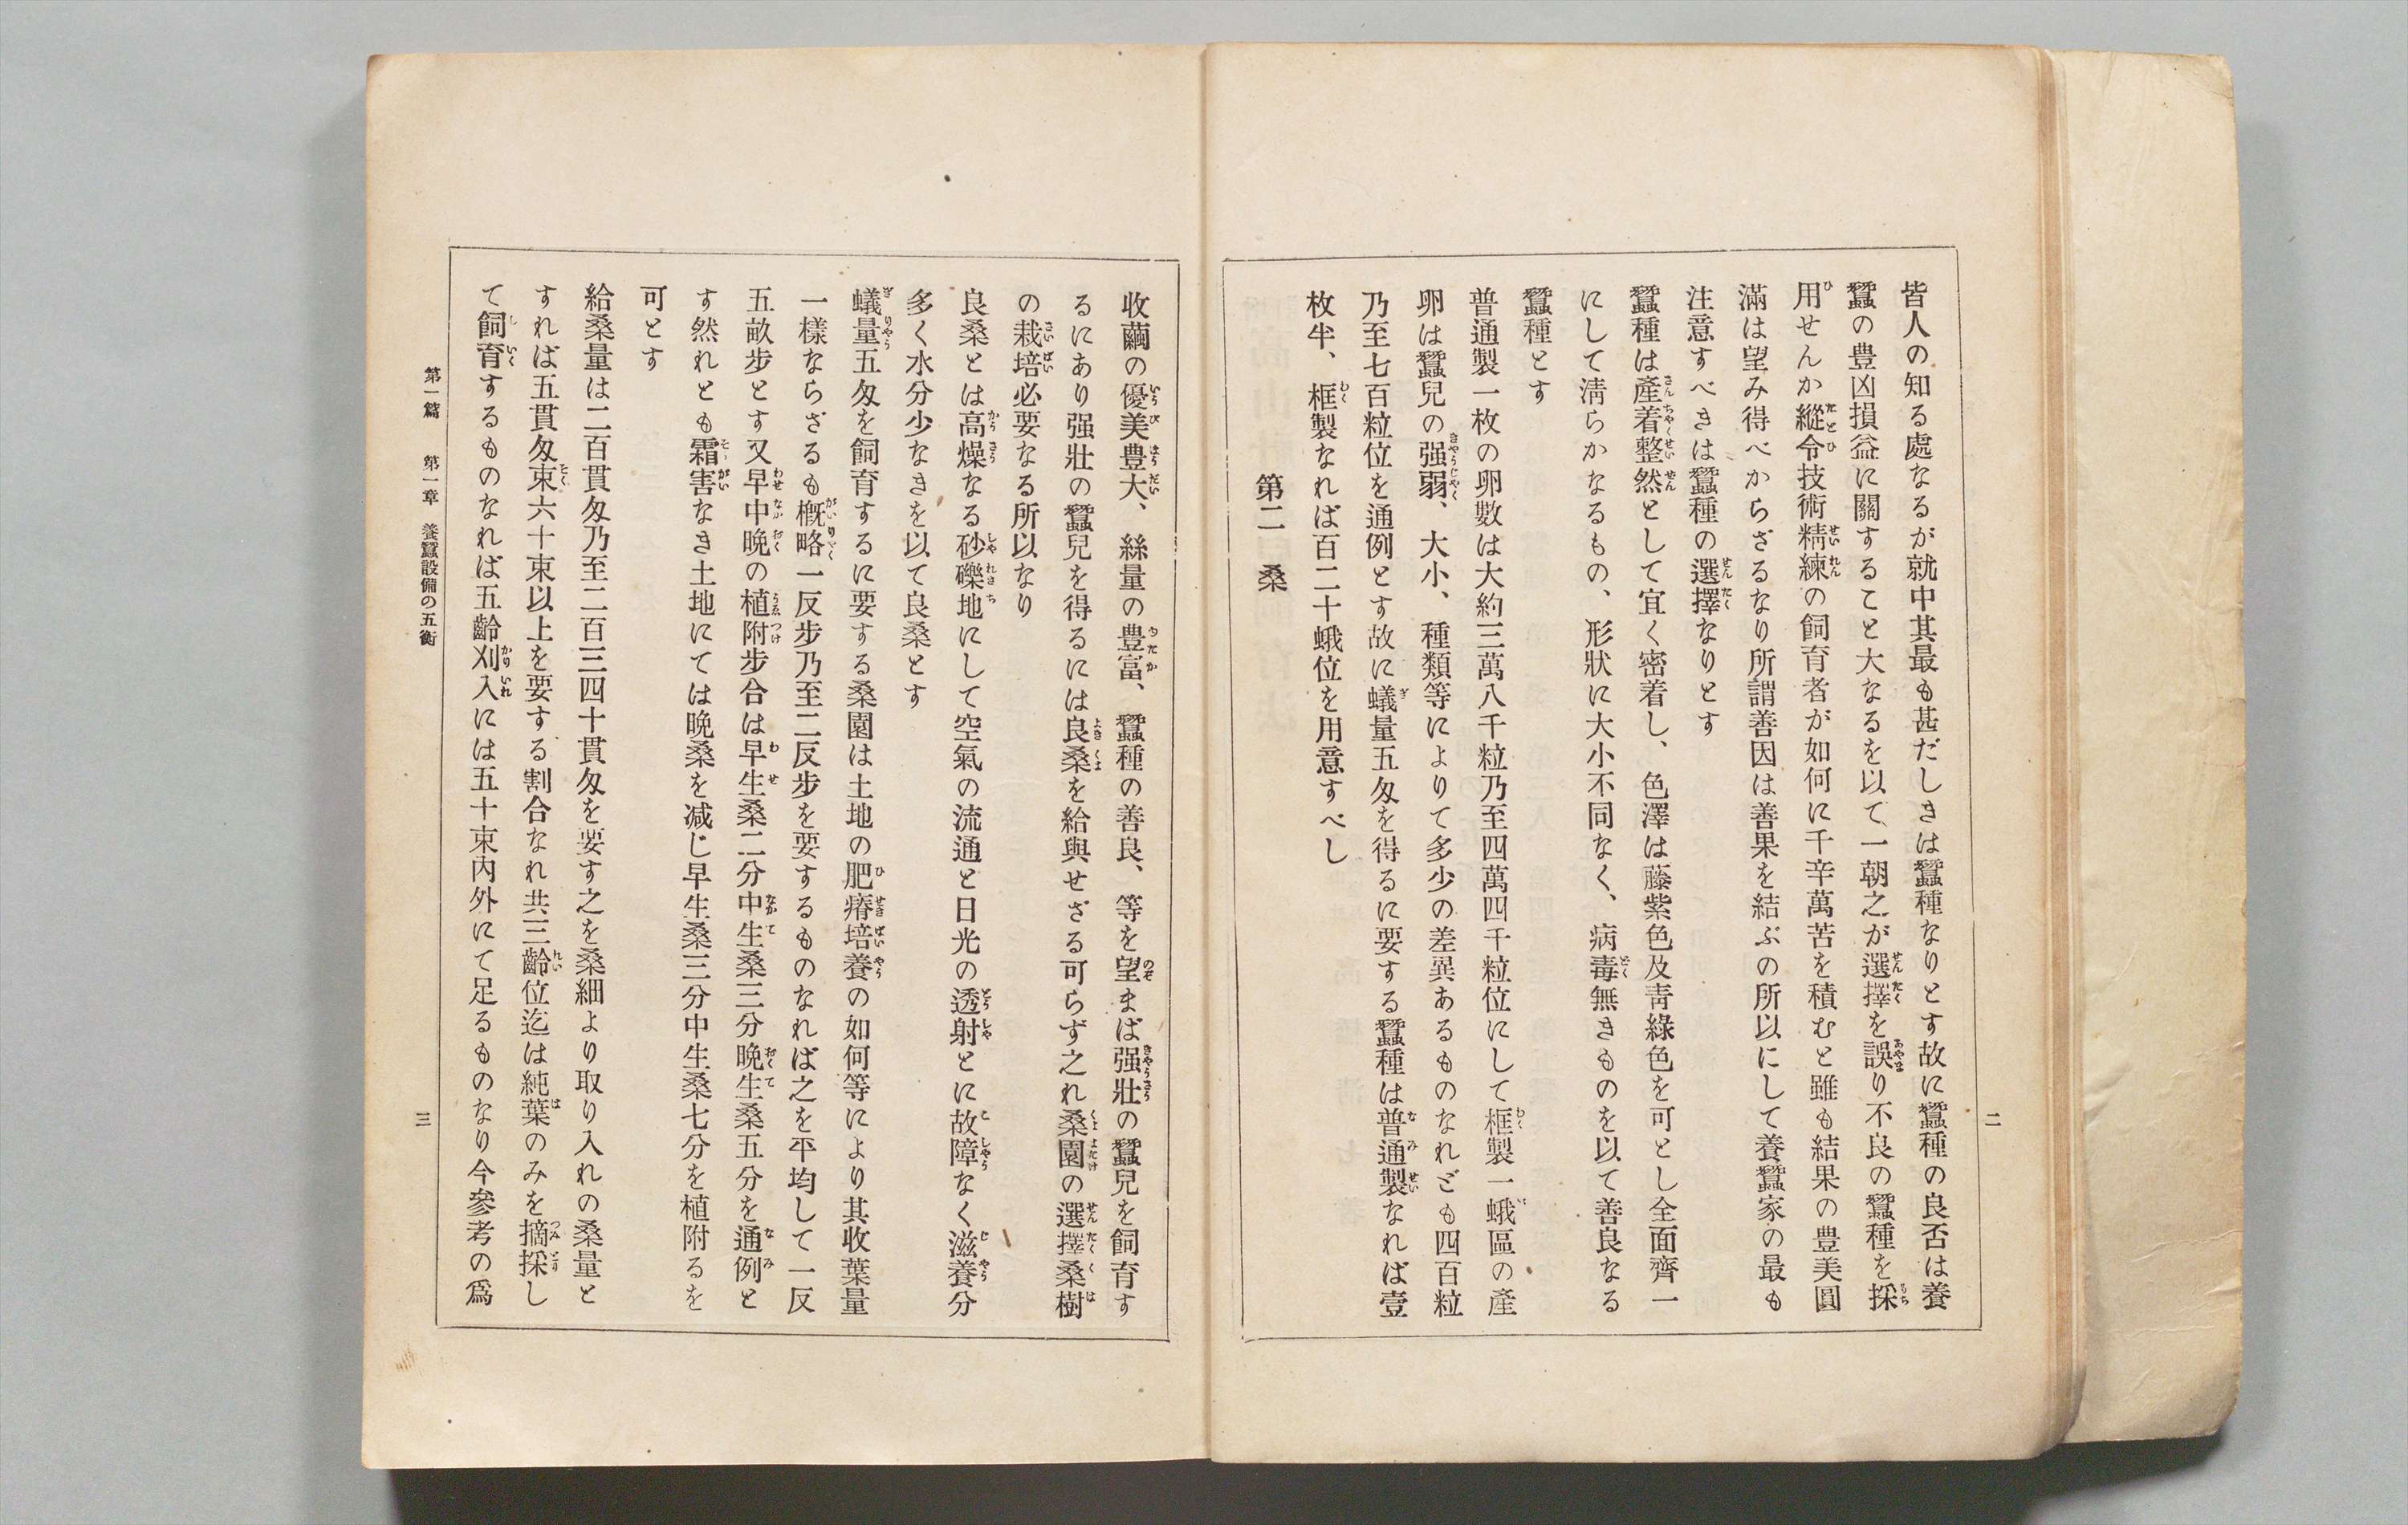 二
皆人の知る處なるが就中其最も甚だしきは蠶種なりとす故に蠶種の良否は養
蠶の豊凶損益に關すること大なるを以て、一朝之が選擇を誤り不良の蠶種を採
用せんか縱令技術精練の飼育者が如何に千辛萬苦を積むと雖も結果の豊美圓
滿は望み得べからざるなり所謂善因は善果を結ぶの所以にして養蠶家の最も
注意すべきは蠶種の選擇なりとす
蠶種は產着整然として宜く密着し、色澤は藤紫色及靑綠色を可とし全面齊一
にして淸らかなるもの、形狀に大小不同なく、病毒無きものを以て善良なる
蠶種とす
普通製一枚の卵數は大約三萬八千粒乃至四萬四千粒位にして框製一蛾區の產
卵は蠶兒の强弱、大小、種類等によりて多少の差異あるものなれども四百粒
乃至七百粒位を通例とす故に蟻量五匁を得るに要する蠶種は普通製なれば壹
枚半、框製なれば百二十蛾位を用意すべし
第二 桑
收繭の優美豊大、絲量の豊富、蠶種の善良、等を望まば强壯の蠶兒を飼育す
るにあり强壯の蠶兒を得るには良桑を給與せざる可らず之れ桑園の選擇桑樹
の栽培必要なる所以なり
良桑とは高燥なる砂礫地にして空氣の流通と日光の透射とに故障なく滋養分
多く水分少なきを以て良桑とす
蟻量五匁を飼育するに要する桑園は土地の肥瘠培養の如何等により其收葉量
一樣ならざるも槪略一反步乃至二反步を要するものなれば之を平均して一反
五畝步とす又早中晩の植附步合は早生桑二分中生桑三分晩生桑五分を通例と
す然れとも霜害なき土地にては晩桑を减じ早生桑三分中生桑七分を植附るを
可とす
給桑量は二百貫匁乃至二百三四十貫匁を要す之を桑細より取り入れの桑量と
すれば五貫匁束六十束以上を要する割合なれ共三齡位迄は純葉のみを摘採し
て飼育するものなれば五齡刈入には五十束内外にて足るものなり今參考の爲
第一篇 第一章 養蠶設備の五衡
三